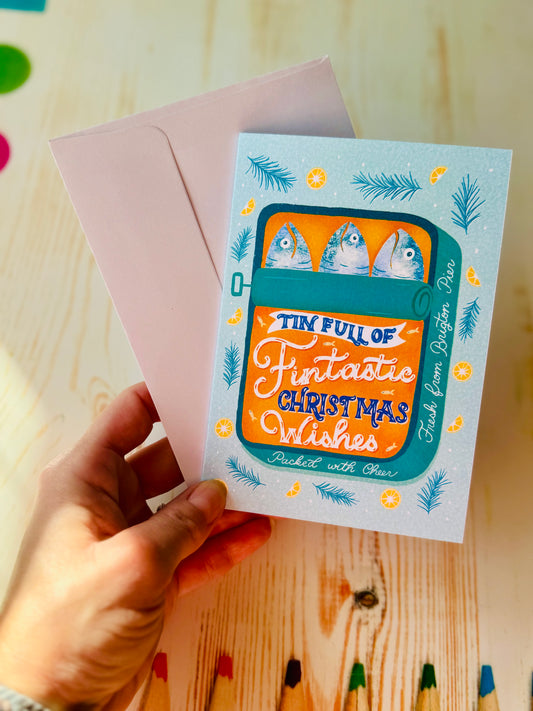 TIN FULL OF
Fintastic
CHRISTMAS
Wishes
Packed with Cheer
Fresh from Brighton Pier